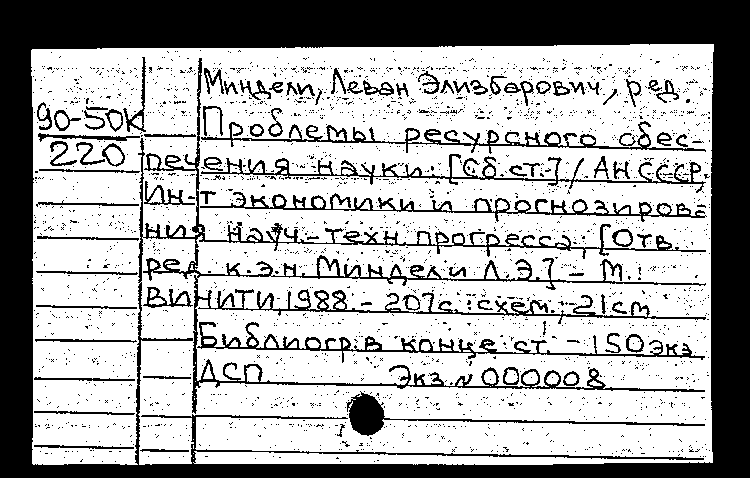 Миндели, Леван Элизбарович, ред.
90-50К
220
Проблемы ресурсного обес-
печения науки: [Сб.ст.] / АН СССР,
Ин-т экономики и прогнозирова
ния науч.-техн. прогресса; [Отв.
ред. к.э.н. Миндели Л.Э.] - М.:
ВИНИТИ, 1988. - 207с.: схем.; 21см
Библиогр. в конце ст. - 150 экз
ДСП. Экз. № 000008